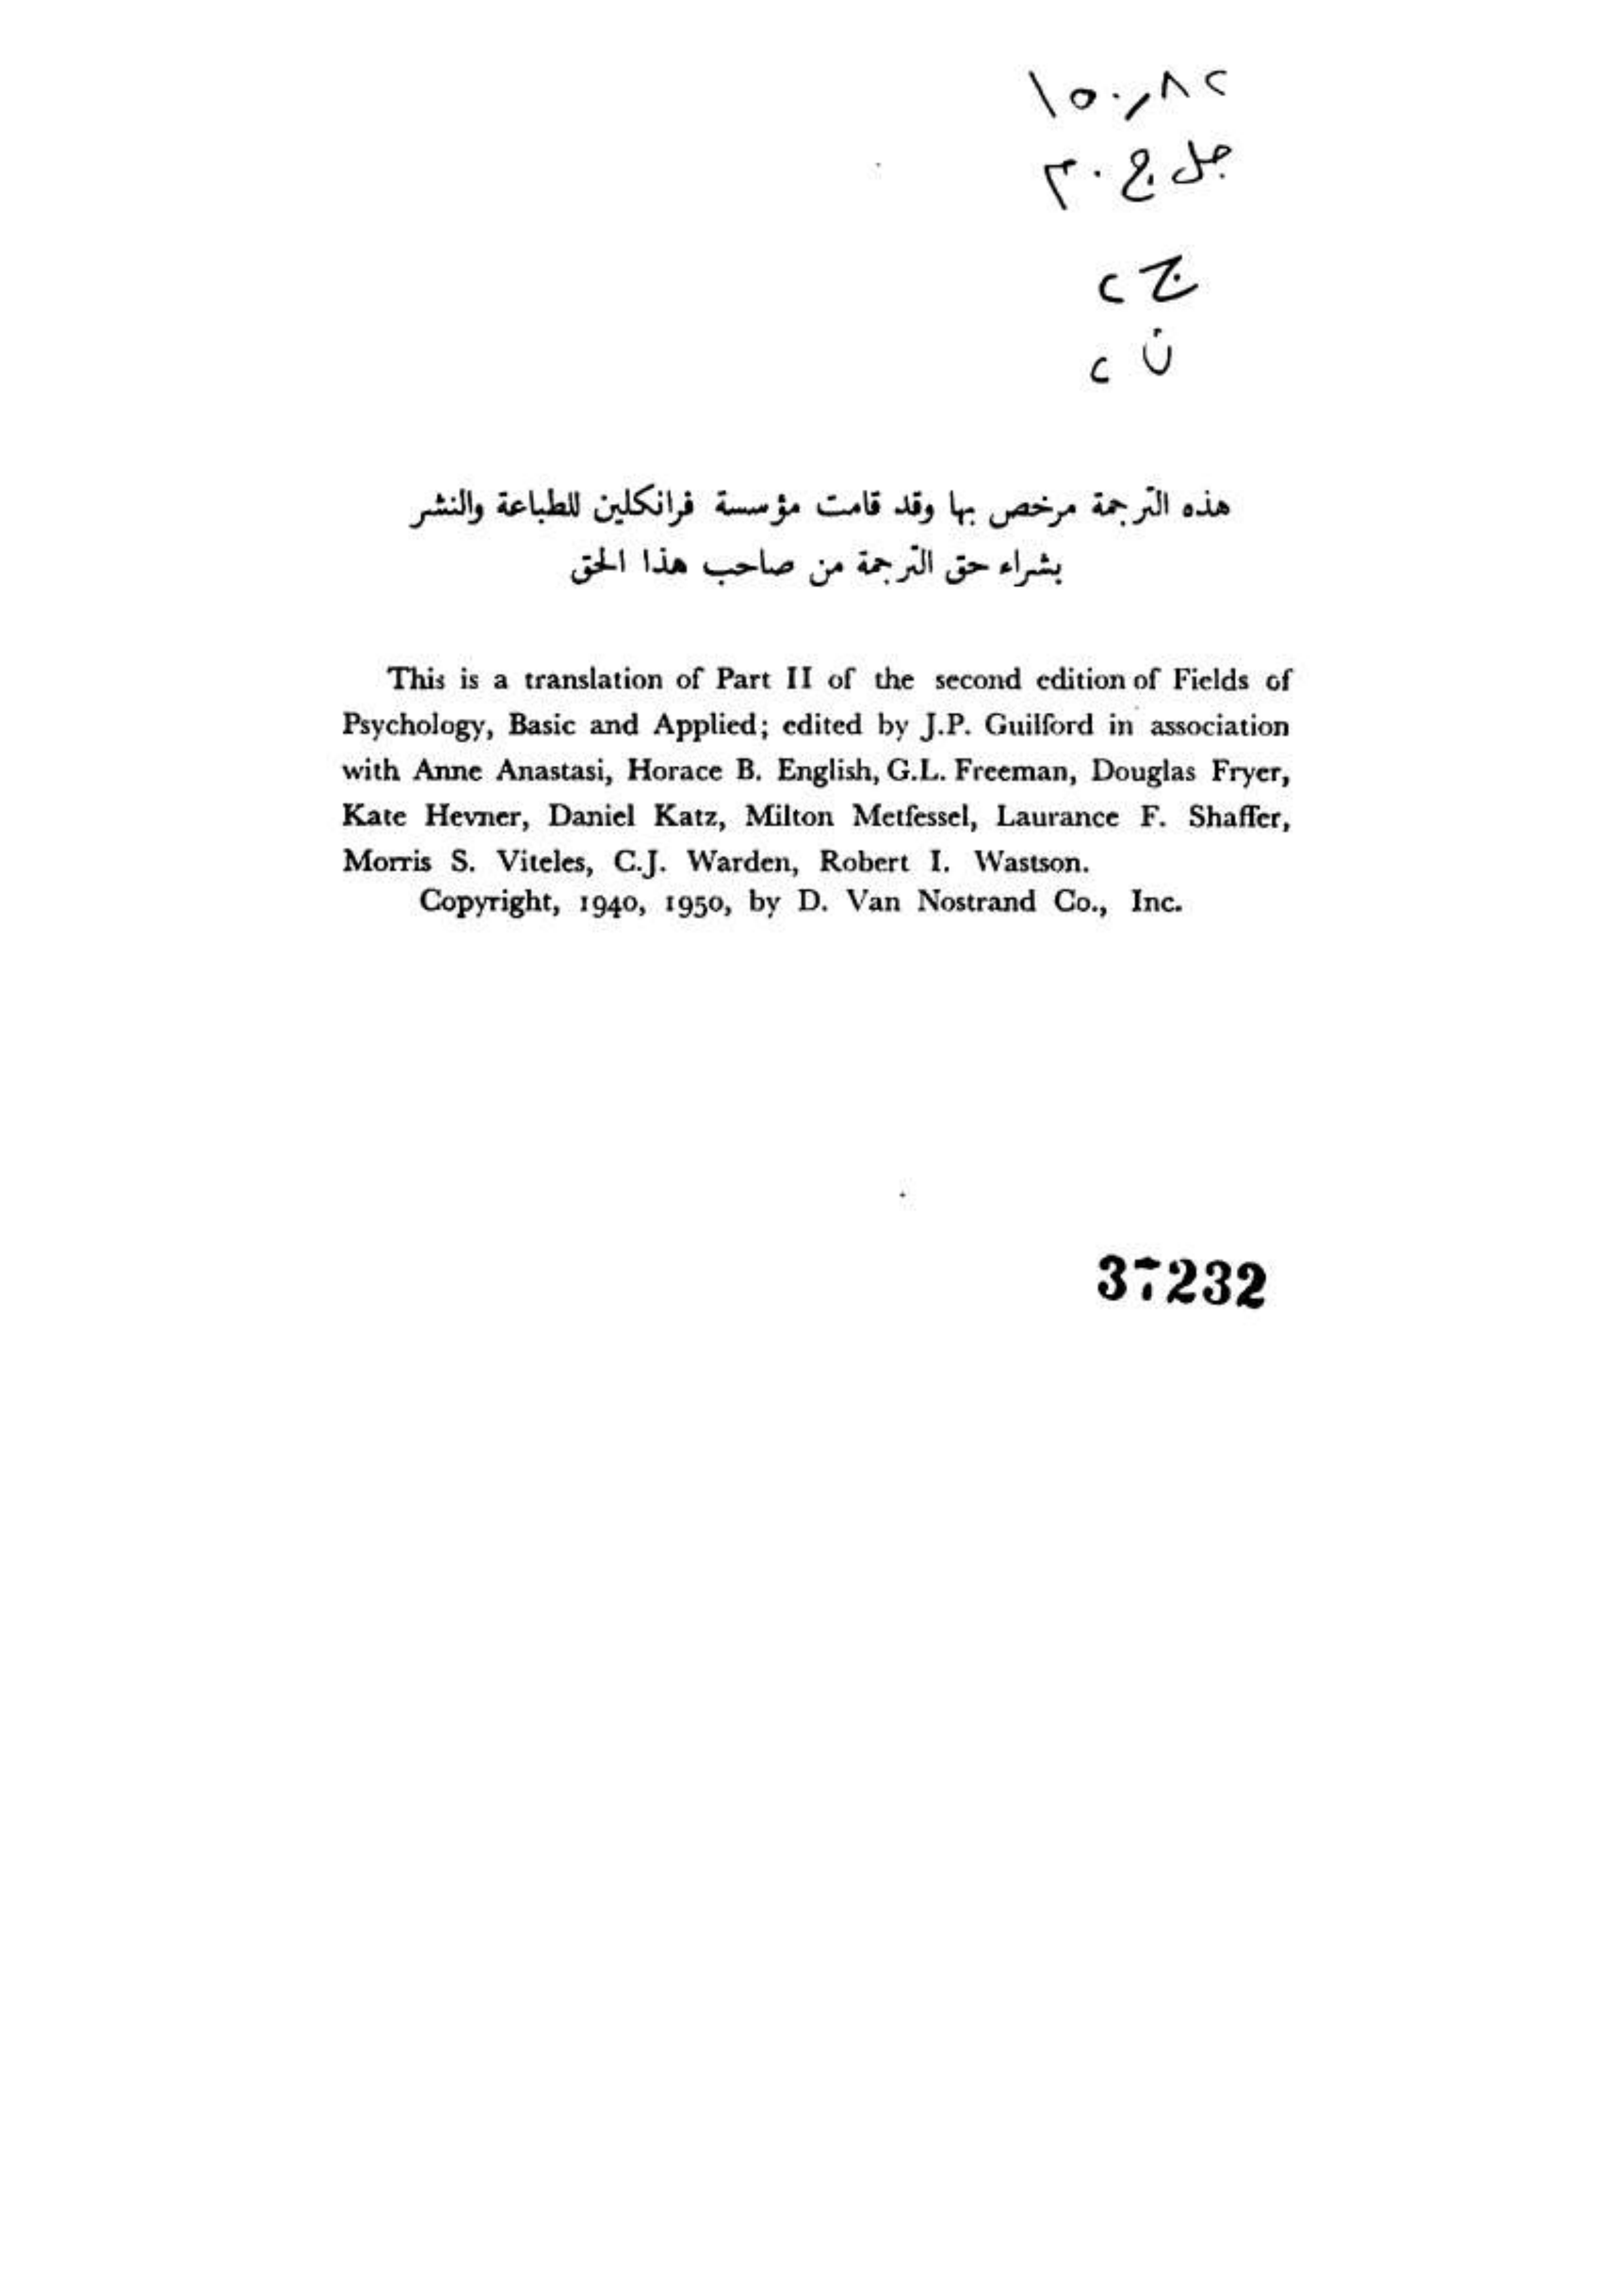 ١٥٠,٨٢
ج ٢
ن ٢
هذه الترجمة مرخص بها وقد قامت مؤسسة فرانكلين للطباعة والنشر
بشراء حق الترجمة من صاحب هذا الحق
This is a translation of Part II of the second edition of Fields of
Psychology, Basic and Applied; edited by J.P. Guilford in association
with Anne Anastasi, Horace B. English, G.L. Freeman, Douglas Fryer,
Kate Hevner, Daniel Katz, Milton Metfessel, Laurance F. Shaffer,
Morris S. Viteles, C.J. Warden, Robert I. Wastson.
Copyright, 1940, 1950, by D. Van Nostrand Co., Inc.
37232